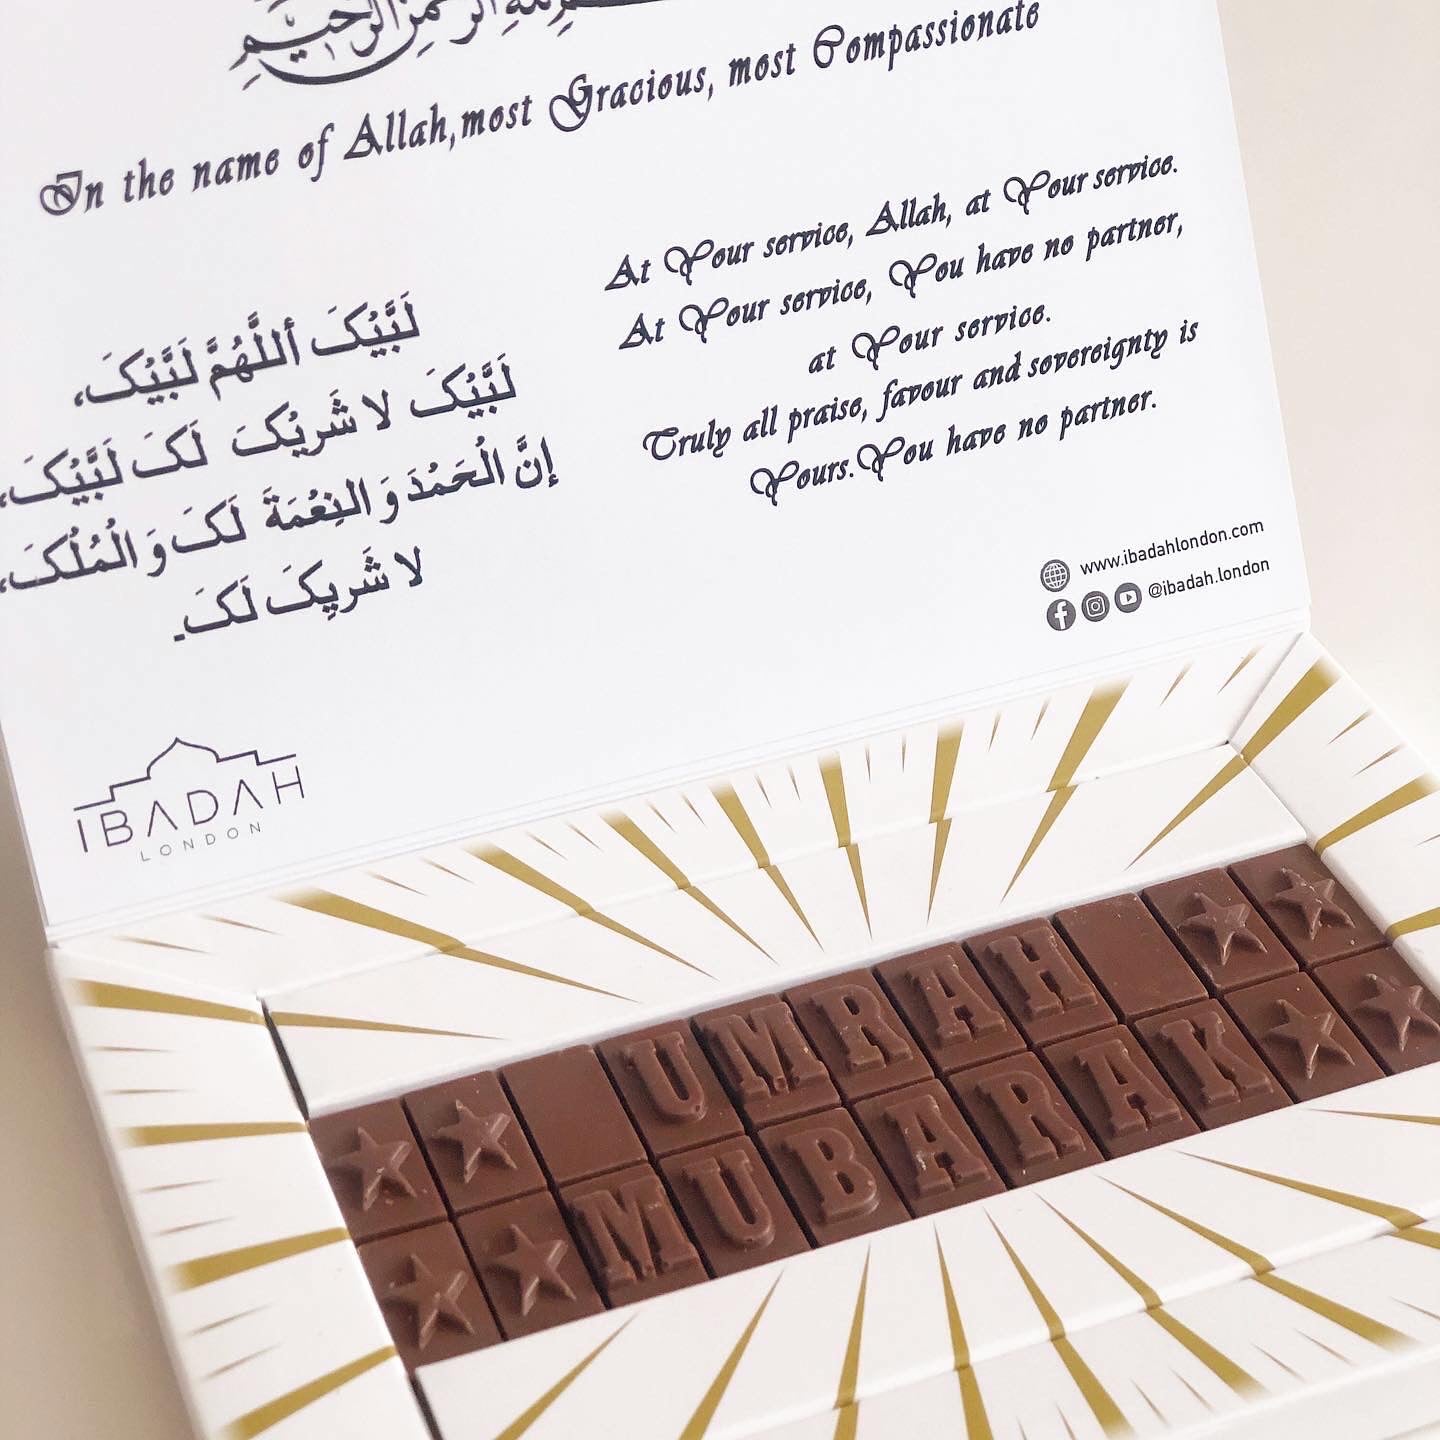 الرَّحْمٰنِ الرَّحِيمِ
In the name of Allah,most Gracious, most Compassionate
لَبَّيُكَ أللَّهُمَّ لَبَّيُكَ،
لَبَّيُكَ لا شَرِيُكَ لَكَ لَبَّيُكَ،
إنَّ الُحَمُدَ وَ النِعُمَةَ لَكَ وَ الُمُلُكَ،
لا شَرِيكَ لَكَ۔
At Your service, Allah, at Your service.
At Your service, You have no partner,
at Your service.
Truly all praise, favour and sovereignty is
Yours.You have no partner.
www.ibadahlondon.com
@ibadah.london
IBADAH
LONDON
UMRAH
MUBARAK